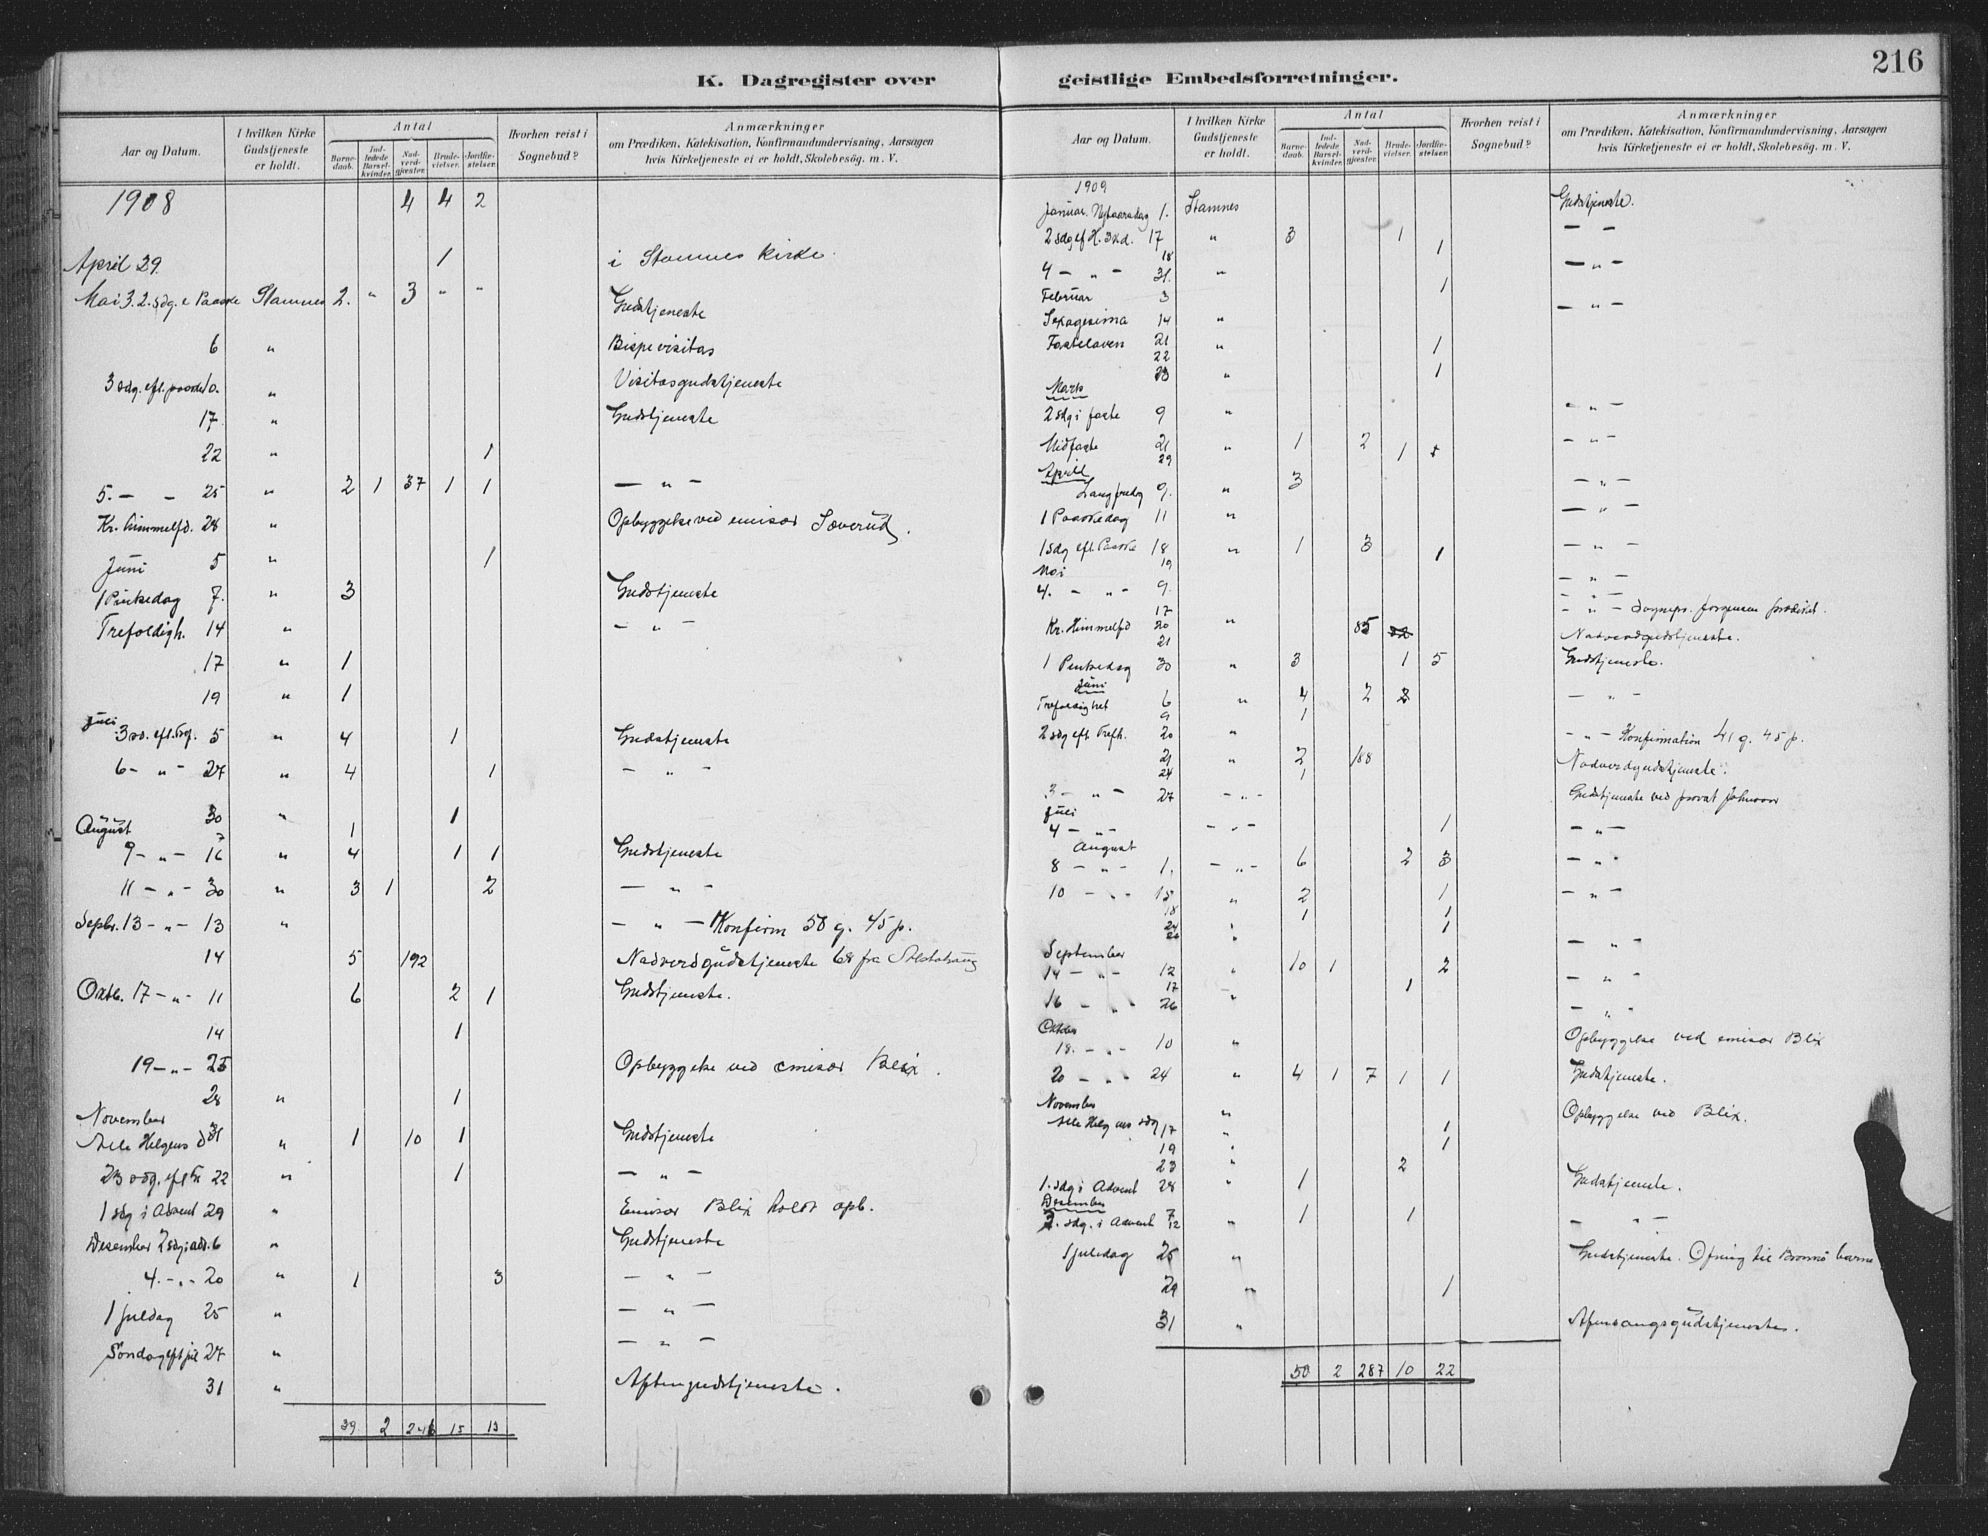 K. Dagregister over
Aar og Datum.
I hvilken Kirke Gudstjeneste er holdt.
Antal
Barnedaab.
Indledede Barselkvinder.
Nadverdgjester.
Brudevielser.
Jordfæstelser.
Hvorhen reist i Sognebud?
Anmærkninger
om Prædiken, Katekisation, Konfirmandundervisning, Aarsagen hvis Kirketjeneste ei er holdt, Skolebesøg. m. V.
1908 4 4 2
April 29. 1 i Stamnes kirke
Mai 3. 2. sdg. e Paaske Stamnes 2. " 3 " " Gudstjeneste
6 " Bispevisitas
3 sdg. eft. paaske 10. " Visitasgudstjeneste
17. " Gudstjeneste
22 " 1
5. — - 25 " 2 1 37 1 1 — " —
Kr. himmelfd. 28 " Opbyggelse ved emisær Sæverud.
Juni 5 " 1
1 Pinsedag 7. " 3 Gudstjeneste
Trefoldigh. 14 " — " —
17 " 1
19 " 1
Juli
3 sd. eft. Tref. 5 " 4 1 Gudstjeneste
6 - " - 27 " 4 1 — " —
30 " 1
August 7 1
9 - " - 16 " 4 1 1 Gudstjeneste
11 - " - 30 " 3 1 2 — " —
Sepbr. 13 - " - 13 " — " — Konfirm 50 g. 45 p.
14 5 192 Nadverdgudstjeneste 68 fra Alstahaug
Oktb. 17 - " - 11 6 2 1 Gudstjeneste.
14 1
19 - " - 25 Opbyggelse ved emisær Blix.
28 " 1
November
Alle Helgens d 31 " 1 10 1 Gudstjeneste
23 sdg. eft Tr 22 " 1 — " —
1 sdg i Advent 29 " Emisær Blix holdt opb.
Desember 2 sdg i adv. 6 " Gudstjeneste
4. - " - 20 " 1 3 — " —
1 juledag 25 " — " —
Søndag eft jul 27 " — " —
31 " Aftengudstjeneste.
39 2 246 15 13
geistlige Embedsforretninger.
216
Aar og Datum.
I hvilken Kirke Gudstjeneste er holdt.
Antal
Barnedaab.
Indledede Barselkvinder.
Nadverdgjester.
Brudevielser.
Jordfæstelser.
Hvorhen reist i Sognebud?
Anmærkninger
om Prædiken, Katekisation, Konfirmandundervisning, Aarsagen hvis Kirketjeneste ei er holdt, Skolebesøg. m. V.
1909
Januar. Nytaarsdag 1. Stamnes Gudstjeneste.
2 sdg ef H. 3 kd. 17 " 3 1 — —
18 1
4 — " - 31. " — " —
Februar 3 1
Sexagesima 14 " — " —
Fastelaven 21 "
22 1
Mars 23 " 1
2 sdg i faste 9 " — " —
Midfaste 21 " 1 2 — " —
29 1
April
Langfredag 9. " 3 — " —
1 Paaskedag 11 " — " —
1 sdg eft. Paaske 18 " 1 3 — " —
19 1
Mai
4. - " - 9. — " —
17 - " - Sognepr. Jørgensen prædiket.
Kr. Himmelfd 20 " 85
21 Nadverdgudstjeneste.
1 Pinsedag 30 " 3 1 5 Gudstjeneste.
Juni
Trefoldighet 6 " 4 2 2 — " —
9 1
2 sdg eft. Trefh. 20 " - " - Konfirmation 41 g. 45 p.
21 " 2 188 Nadverdgudstjeneste.
24 1
3 — " — 27 - " - Gudstjeneste ved provst Johnson
Juli
4 — " - - " - 1 — " —
August
8 - " - 1. - " - 6 2 3 — " —
10 - " - 15 " 2 1 — " —
18 1 1
24 " 1
26 "
September — " —
14 - " - 12 " 10 1 2
17 1 — " —
16 - " - 26 " — " —
Oktober
18. - " - 10 " Opbyggelse ved emisær Blix
20 - " - 24 " 4 1 7 1 1 Gudstjeneste.
November
Alle Helgens sdg " Opbyggelse ved Blix.
17 " 1
19 " 1
23 " 2
1. sdg i Advent 28 " 1 Gudstjeneste.
Desember 7 1 1
. sdg. i Advent 12 " - " -
1 juledag 25 " Gudstjeneste. Ofring til Brønnø barne
29 " 1
31 " Aftensangsgudstjeneste.
50 2 287 10 22